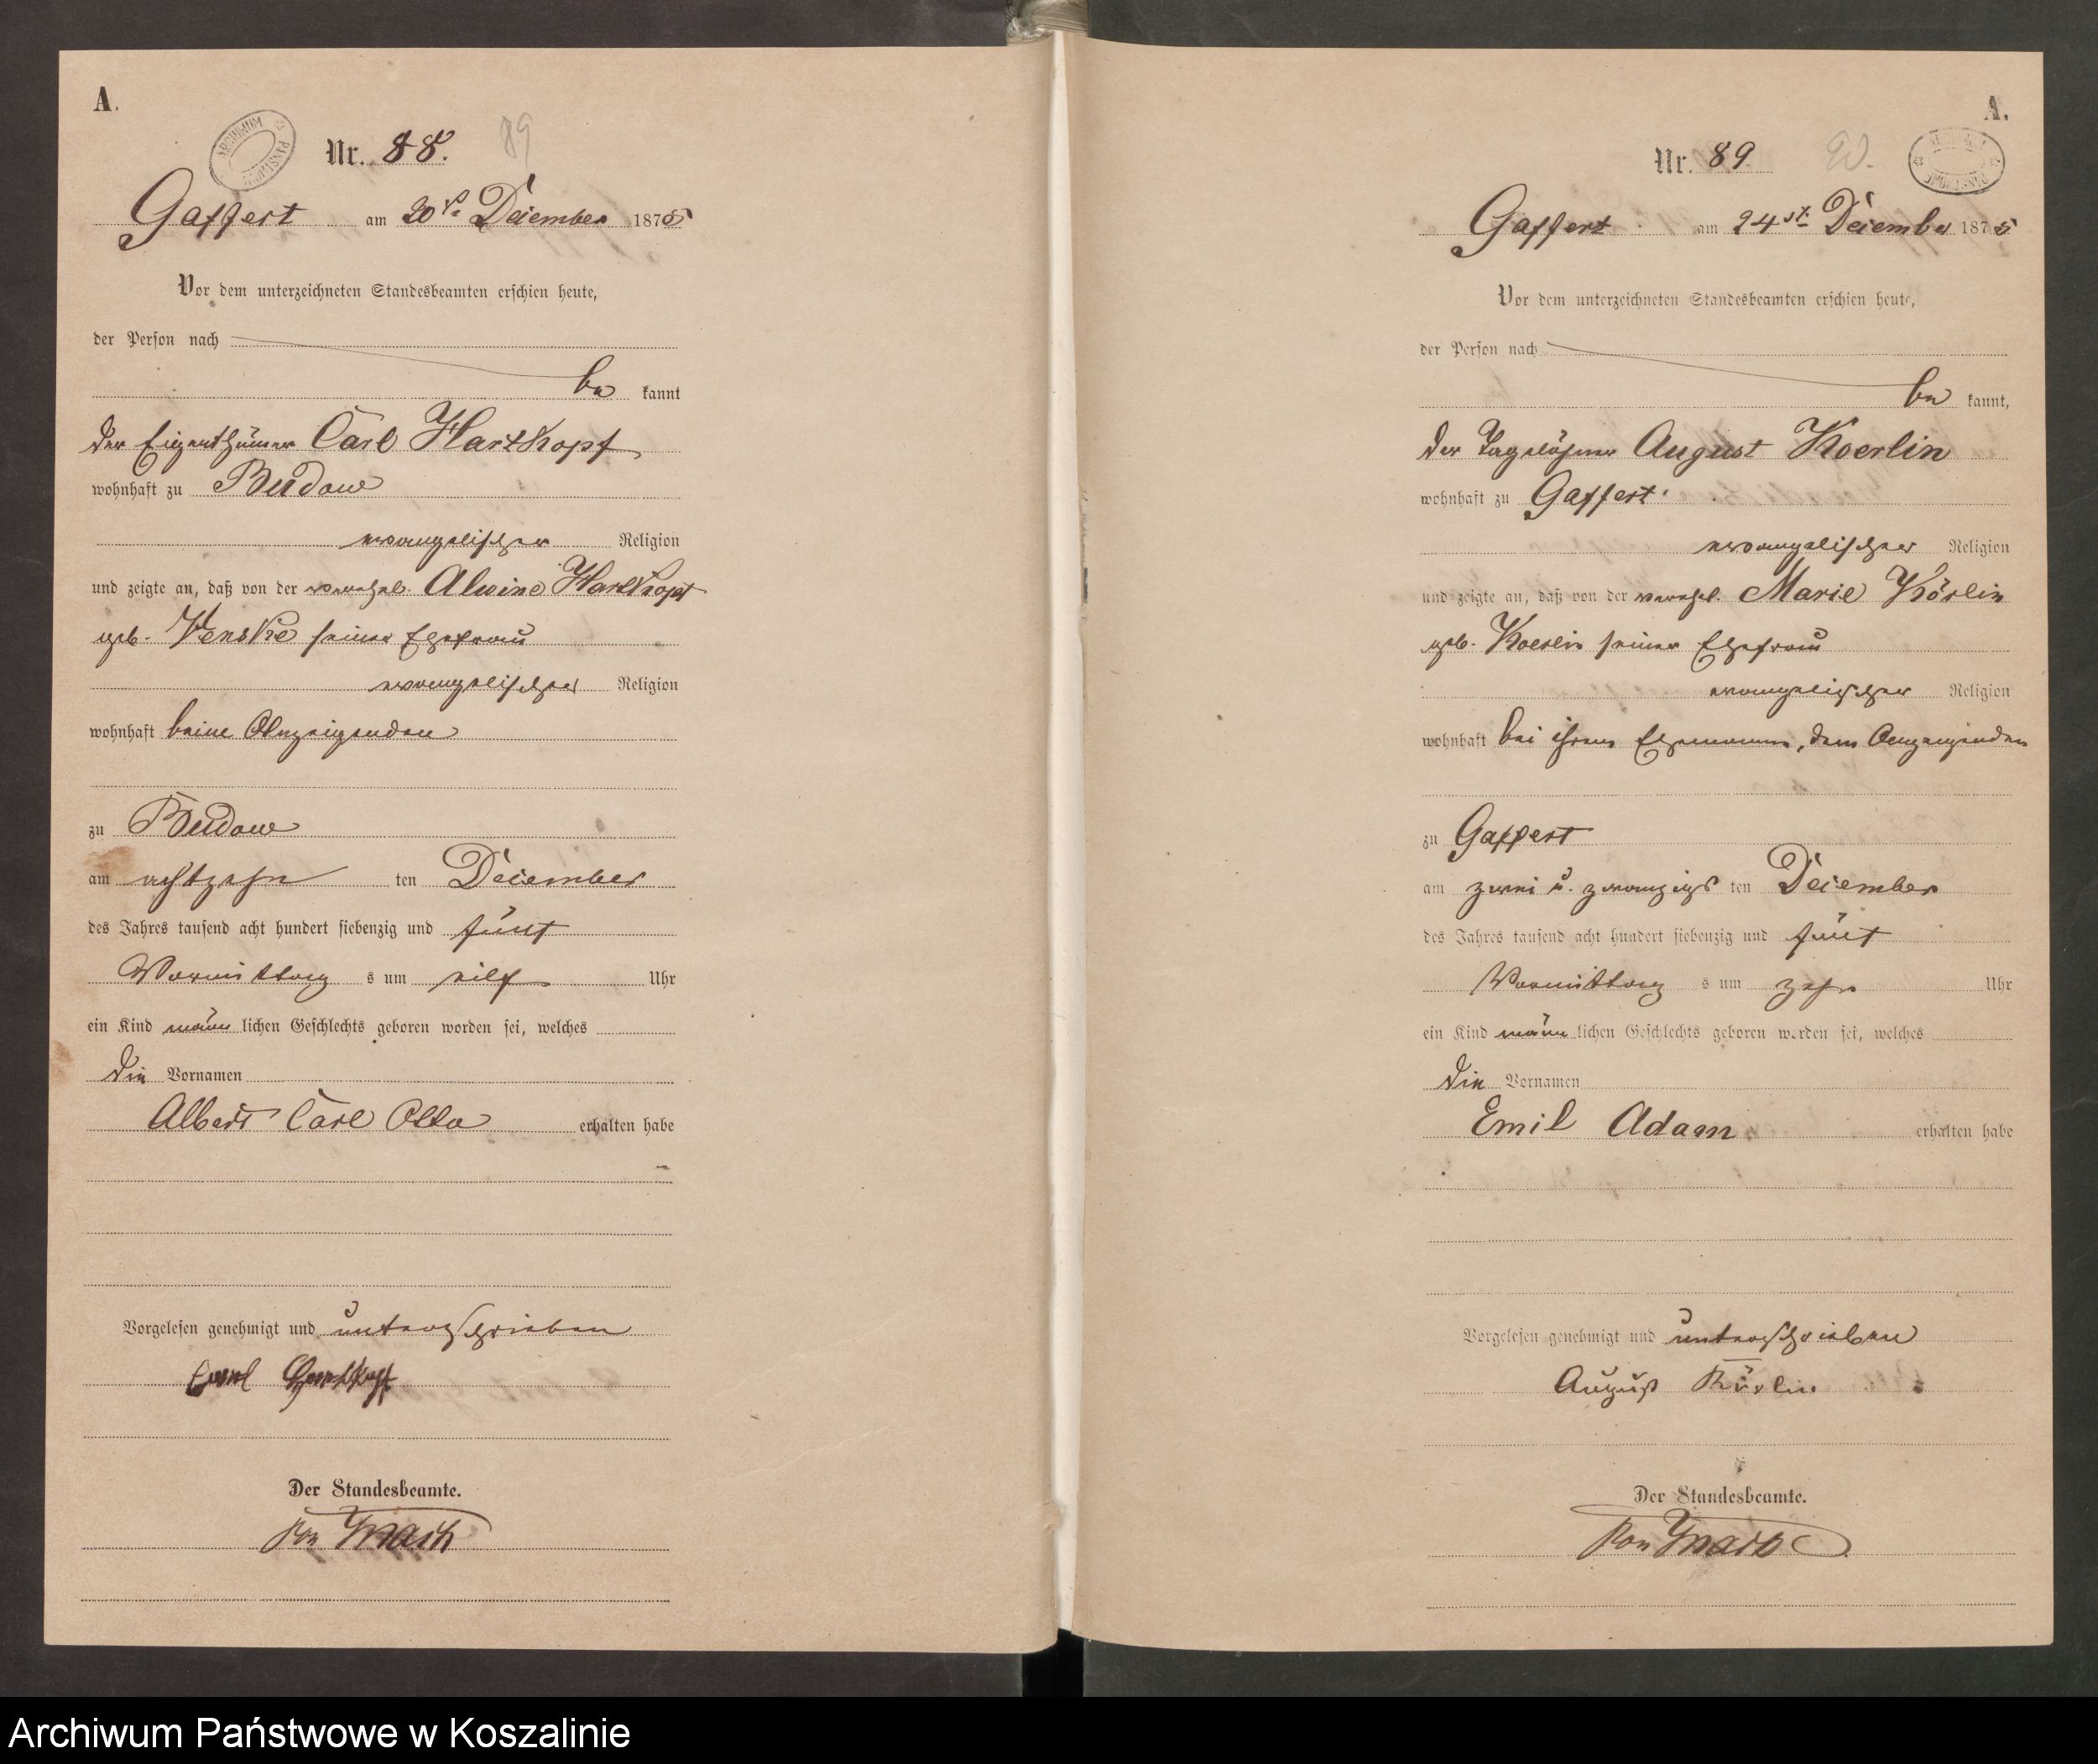 A.
ARCHIWUM PAŃSTWOWE
Nr. 88. 89
Gaffert am 20st. Dezember 1875
Vor dem unterzeichneten Standesbeamten erschien heute,
der Person nach
be kannt
der Eigenthümer Carl Hartkopf
wohnhaft zu Budow
evangelischer Religion
und zeigte an, daß von der verehel. Alwine Hartkopf
geb. Venske seiner Ehefrau
evangelischer Religion
wohnhaft beim Anzeigenden
zu Budow
am achtzehn ten Dezember
des Jahres tausend acht hundert siebenzig und fünf
Vormittag s um eilf Uhr
ein Kind männ lichen Geschlechts geboren worden sei, welches
die Vornamen
Albert Carl Otto erhalten habe
Vorgelesen genehmigt und unterschrieben
Carl Hartkopf
Der Standesbeamte.
Von
A.
Nr. 89 90.
Gaffert am 24st. Dezember 1875
Vor dem unterzeichneten Standesbeamten erschien heute,
der Person nach
be kannt,
der Tagelöhner August Koerlin
wohnhaft zu Gaffert
evangelischer Religion
und zeigte an, daß von der verehel. Marie Körlin
geb. Koerlin seiner Ehefrau
evangelischer Religion
wohnhaft bei ihrem Ehemanne, dem Anzeigenden
zu Gaffert
am zwei u. zwanzigs ten Dezember
des Jahres tausend acht hundert siebenzig und fünf
Vormittag s um zehn Uhr
ein Kind männ lichen Geschlechts geboren worden sei, welches
die Vornamen
Emil Adam erhalten habe
Vorgelesen genehmigt und unterschrieben
August Körlin
Der Standesbeamte.
Von
Archiwum Państwowe w Koszalinie